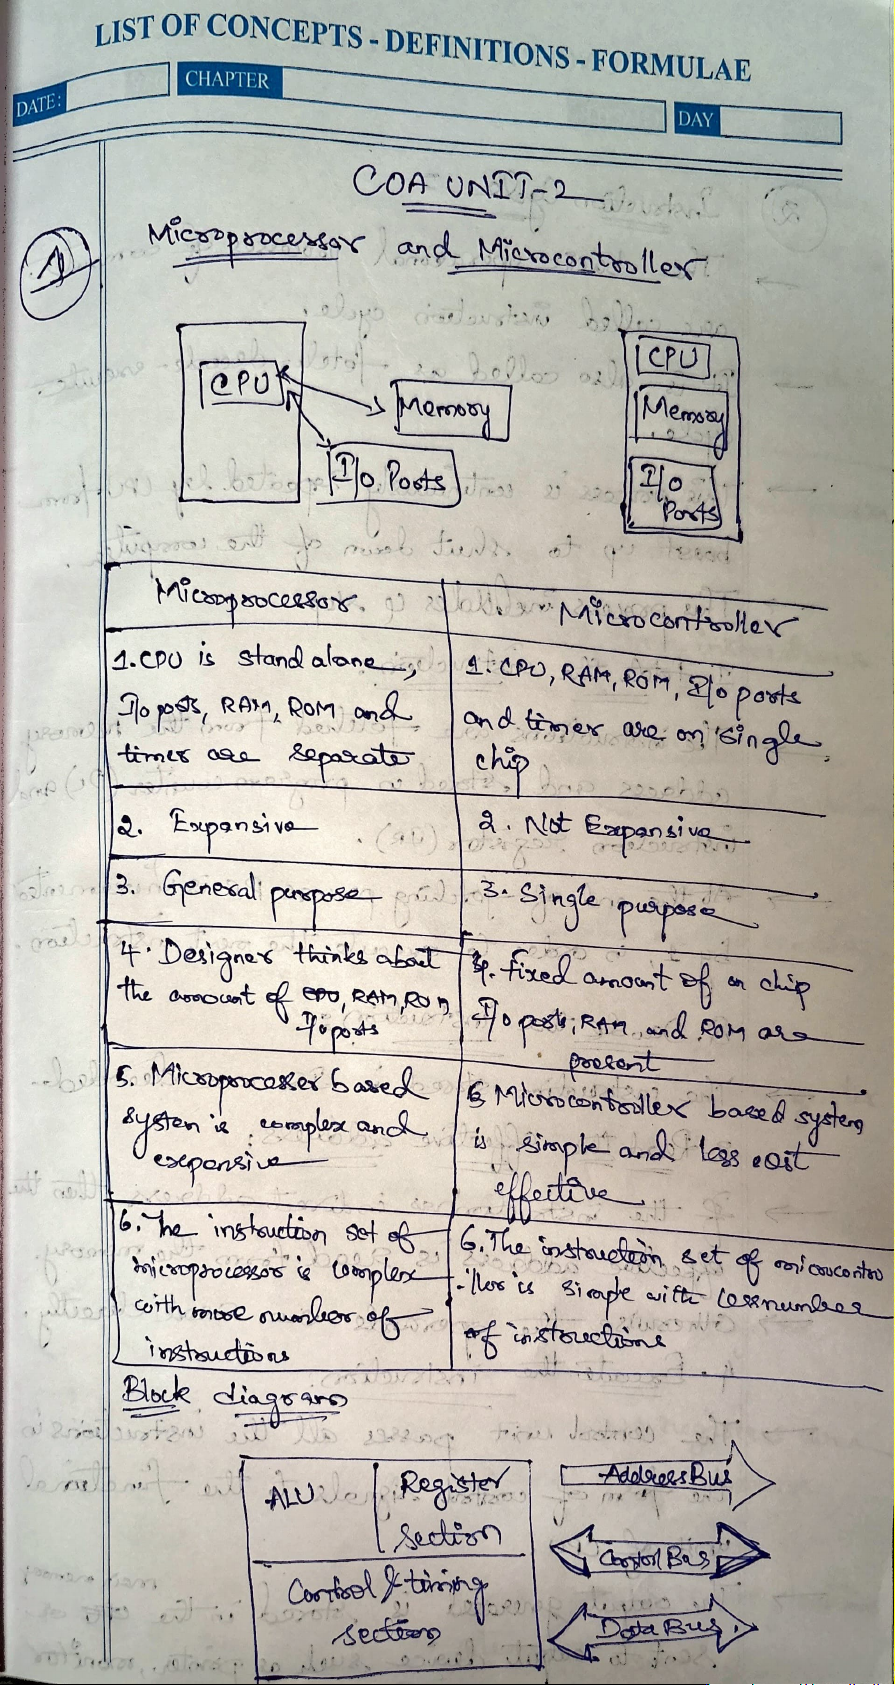 LIST OF CONCEPTS - DEFINITIONS - FORMULAE
DATE:
CHAPTER
DAY
COA UNIT-2
1
Microprocessor and Microcontroller
CPU
Memory
I/O Ports
CPU
Memory
I/O
Ports
Microprocessor
Microcontroller
1. CPU is stand alone,
I/o ports, RAM, ROM and
timer are separate
1. CPU, RAM, ROM, I/o ports
and timer are on single
chip
2. Expansive
2. Not Expansive
3. General purpose
3. Single purpose
4. Designer thinks about
the amount of CPU, RAM, ROM,
I/o ports
4. fixed amount of on chip
I/o ports, RAM, and ROM are
present
5. Microprocesser based
system is complex and
expensive
5 Microcontroller based system
is simple and less cost
effective
6. The instruction set of
microprocessor is complex
with more number of
instructions
6. The instruction set of microcontro
-ller is simple with less number
of instructions
Block diagram
ALU
Register
section
Control & timing
section
Address Bus
Control Bus
Data Bus